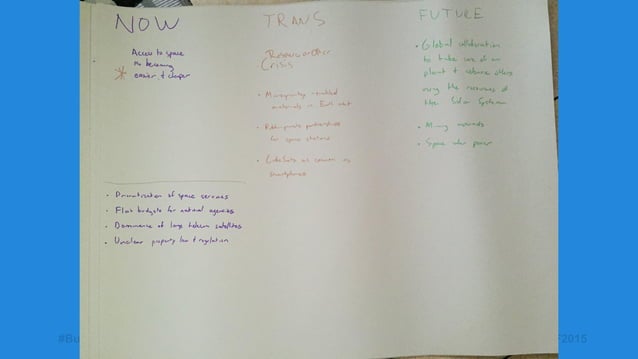 NOW
Access to space
is becoming
easier + cheaper
• Privatisation of space services
• Flat budgets for national agencies
• Dominance of large telecom satellites
• Unclear property law + regulation
TRANS
Resource
Crisis
• Microgravity - enabled
materials in Earth orbit
• Public-private partnerships
for space stations
• CubeSats as common as
smartphones
FUTURE
• Global collaboration
to take care of our
planet + others
using the resources of
the Solar System
• Mining asteroids
• Space solar power
#Bu
F2015